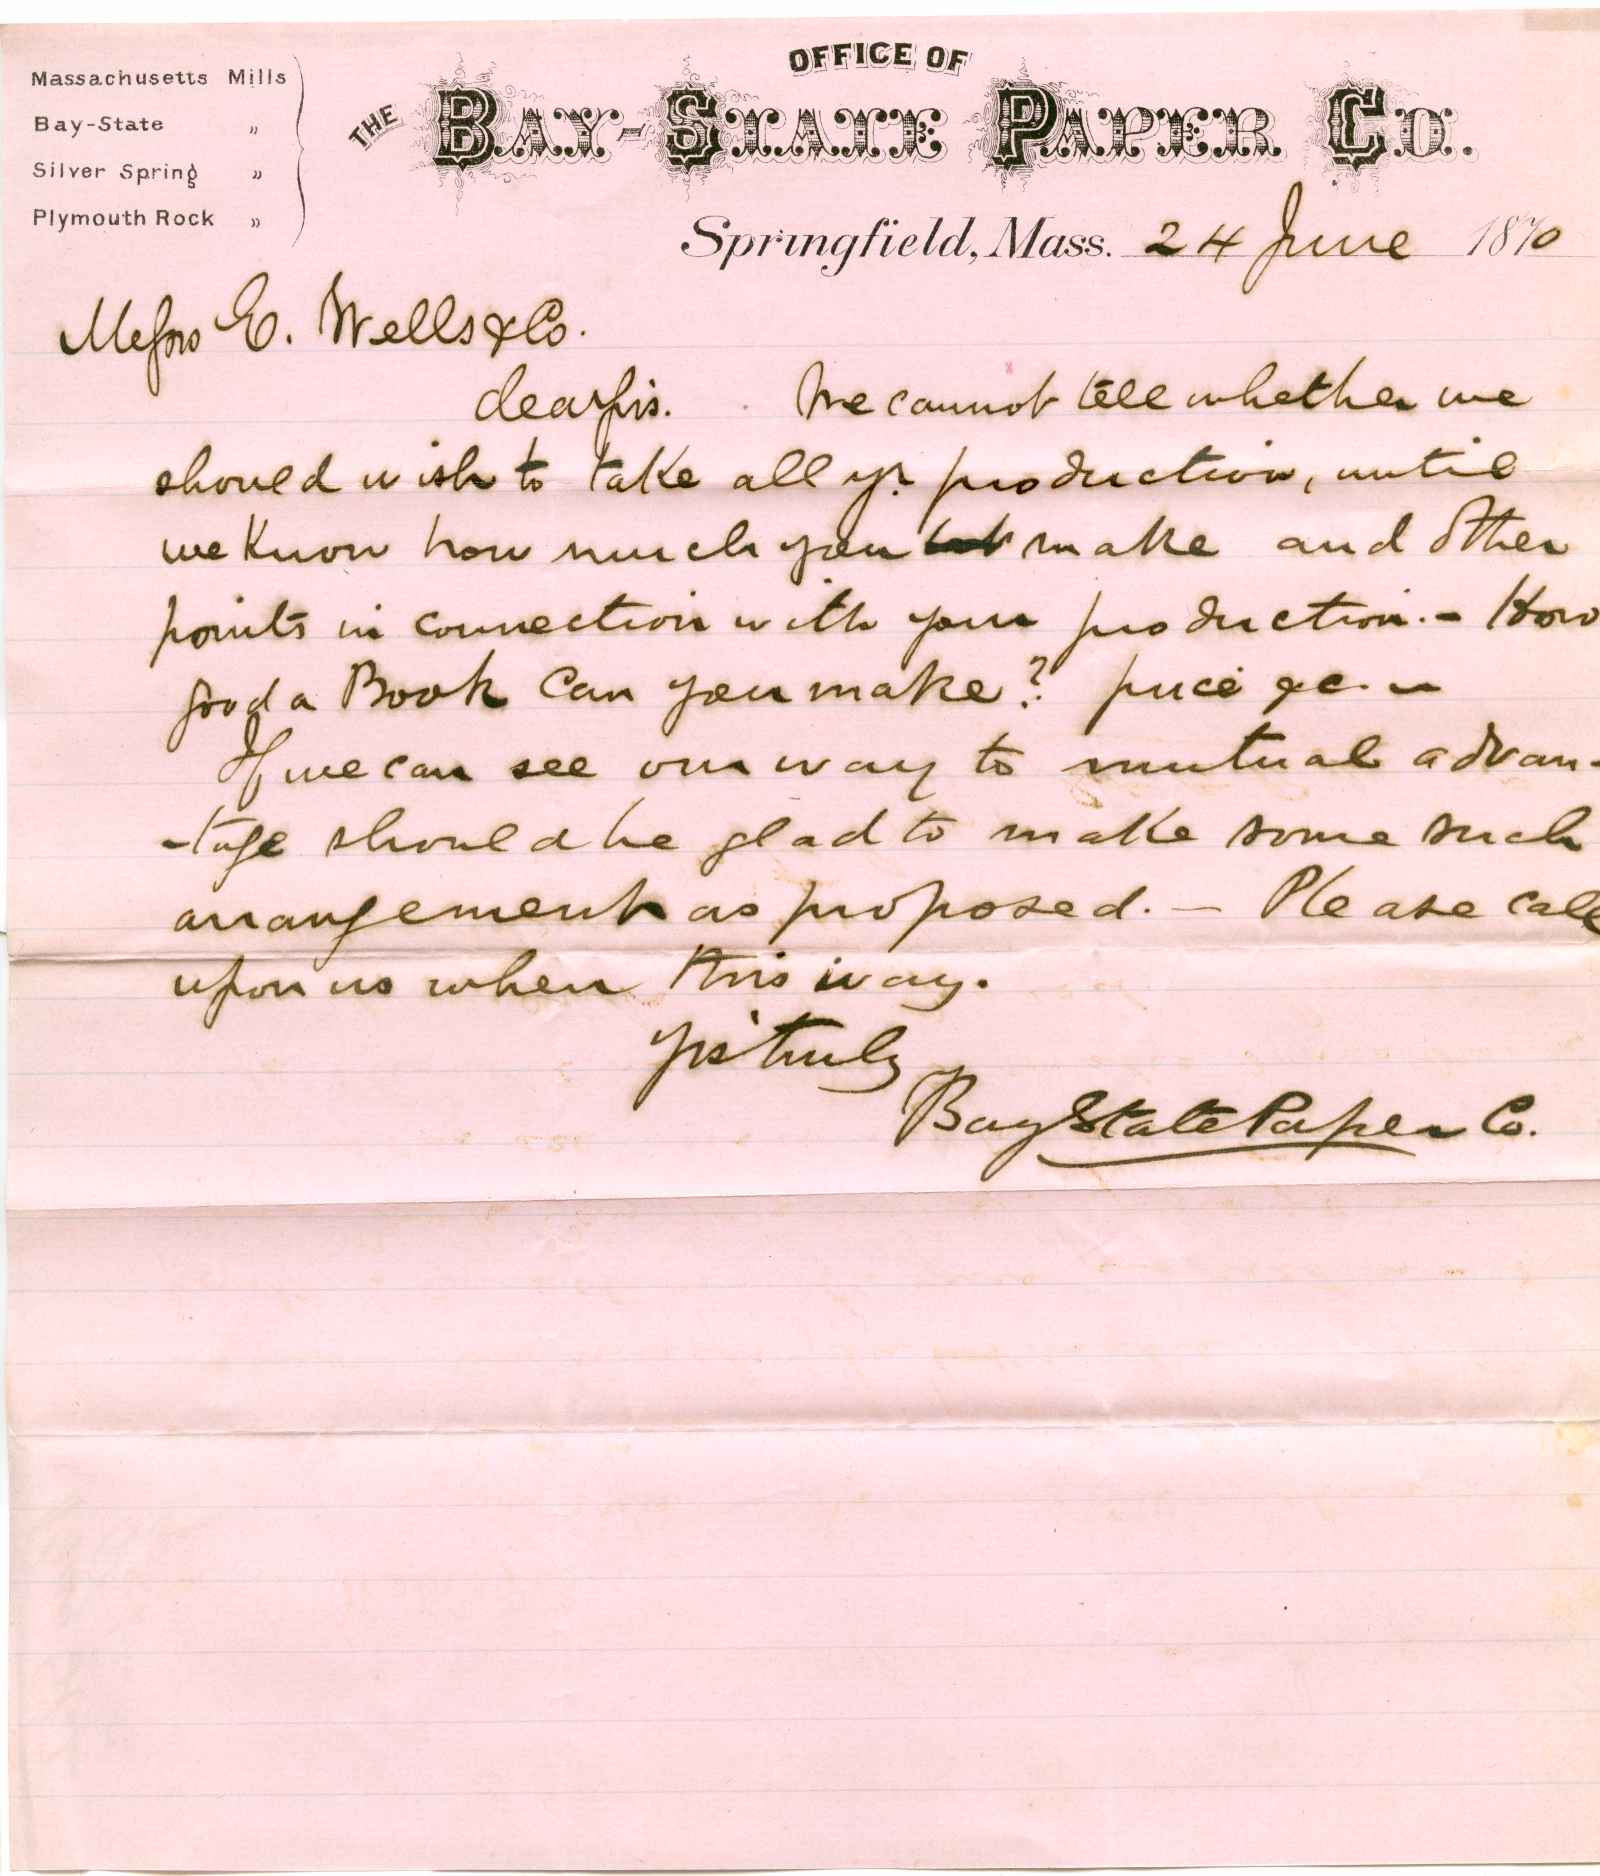 Massachusetts Mills
Bay-State "
Silver Spring "
Plymouth Rock "
OFFICE OF
THE BAY-STATE PAPER CO.
Springfield, Mass. 24 June 1870
Messrs E. Wells & Co.
dear sirs. We cannot tell whether we
should wish to take all yr production, until
we know how much you make and other
points in connection with your production. - How
good a Book can you make? price &c. -
If we can see our way to mutual advan-
-tage should be glad to make some such
arrangement as proposed. - Please call
upon us when this way.
yrs truly
Bay State Paper Co.